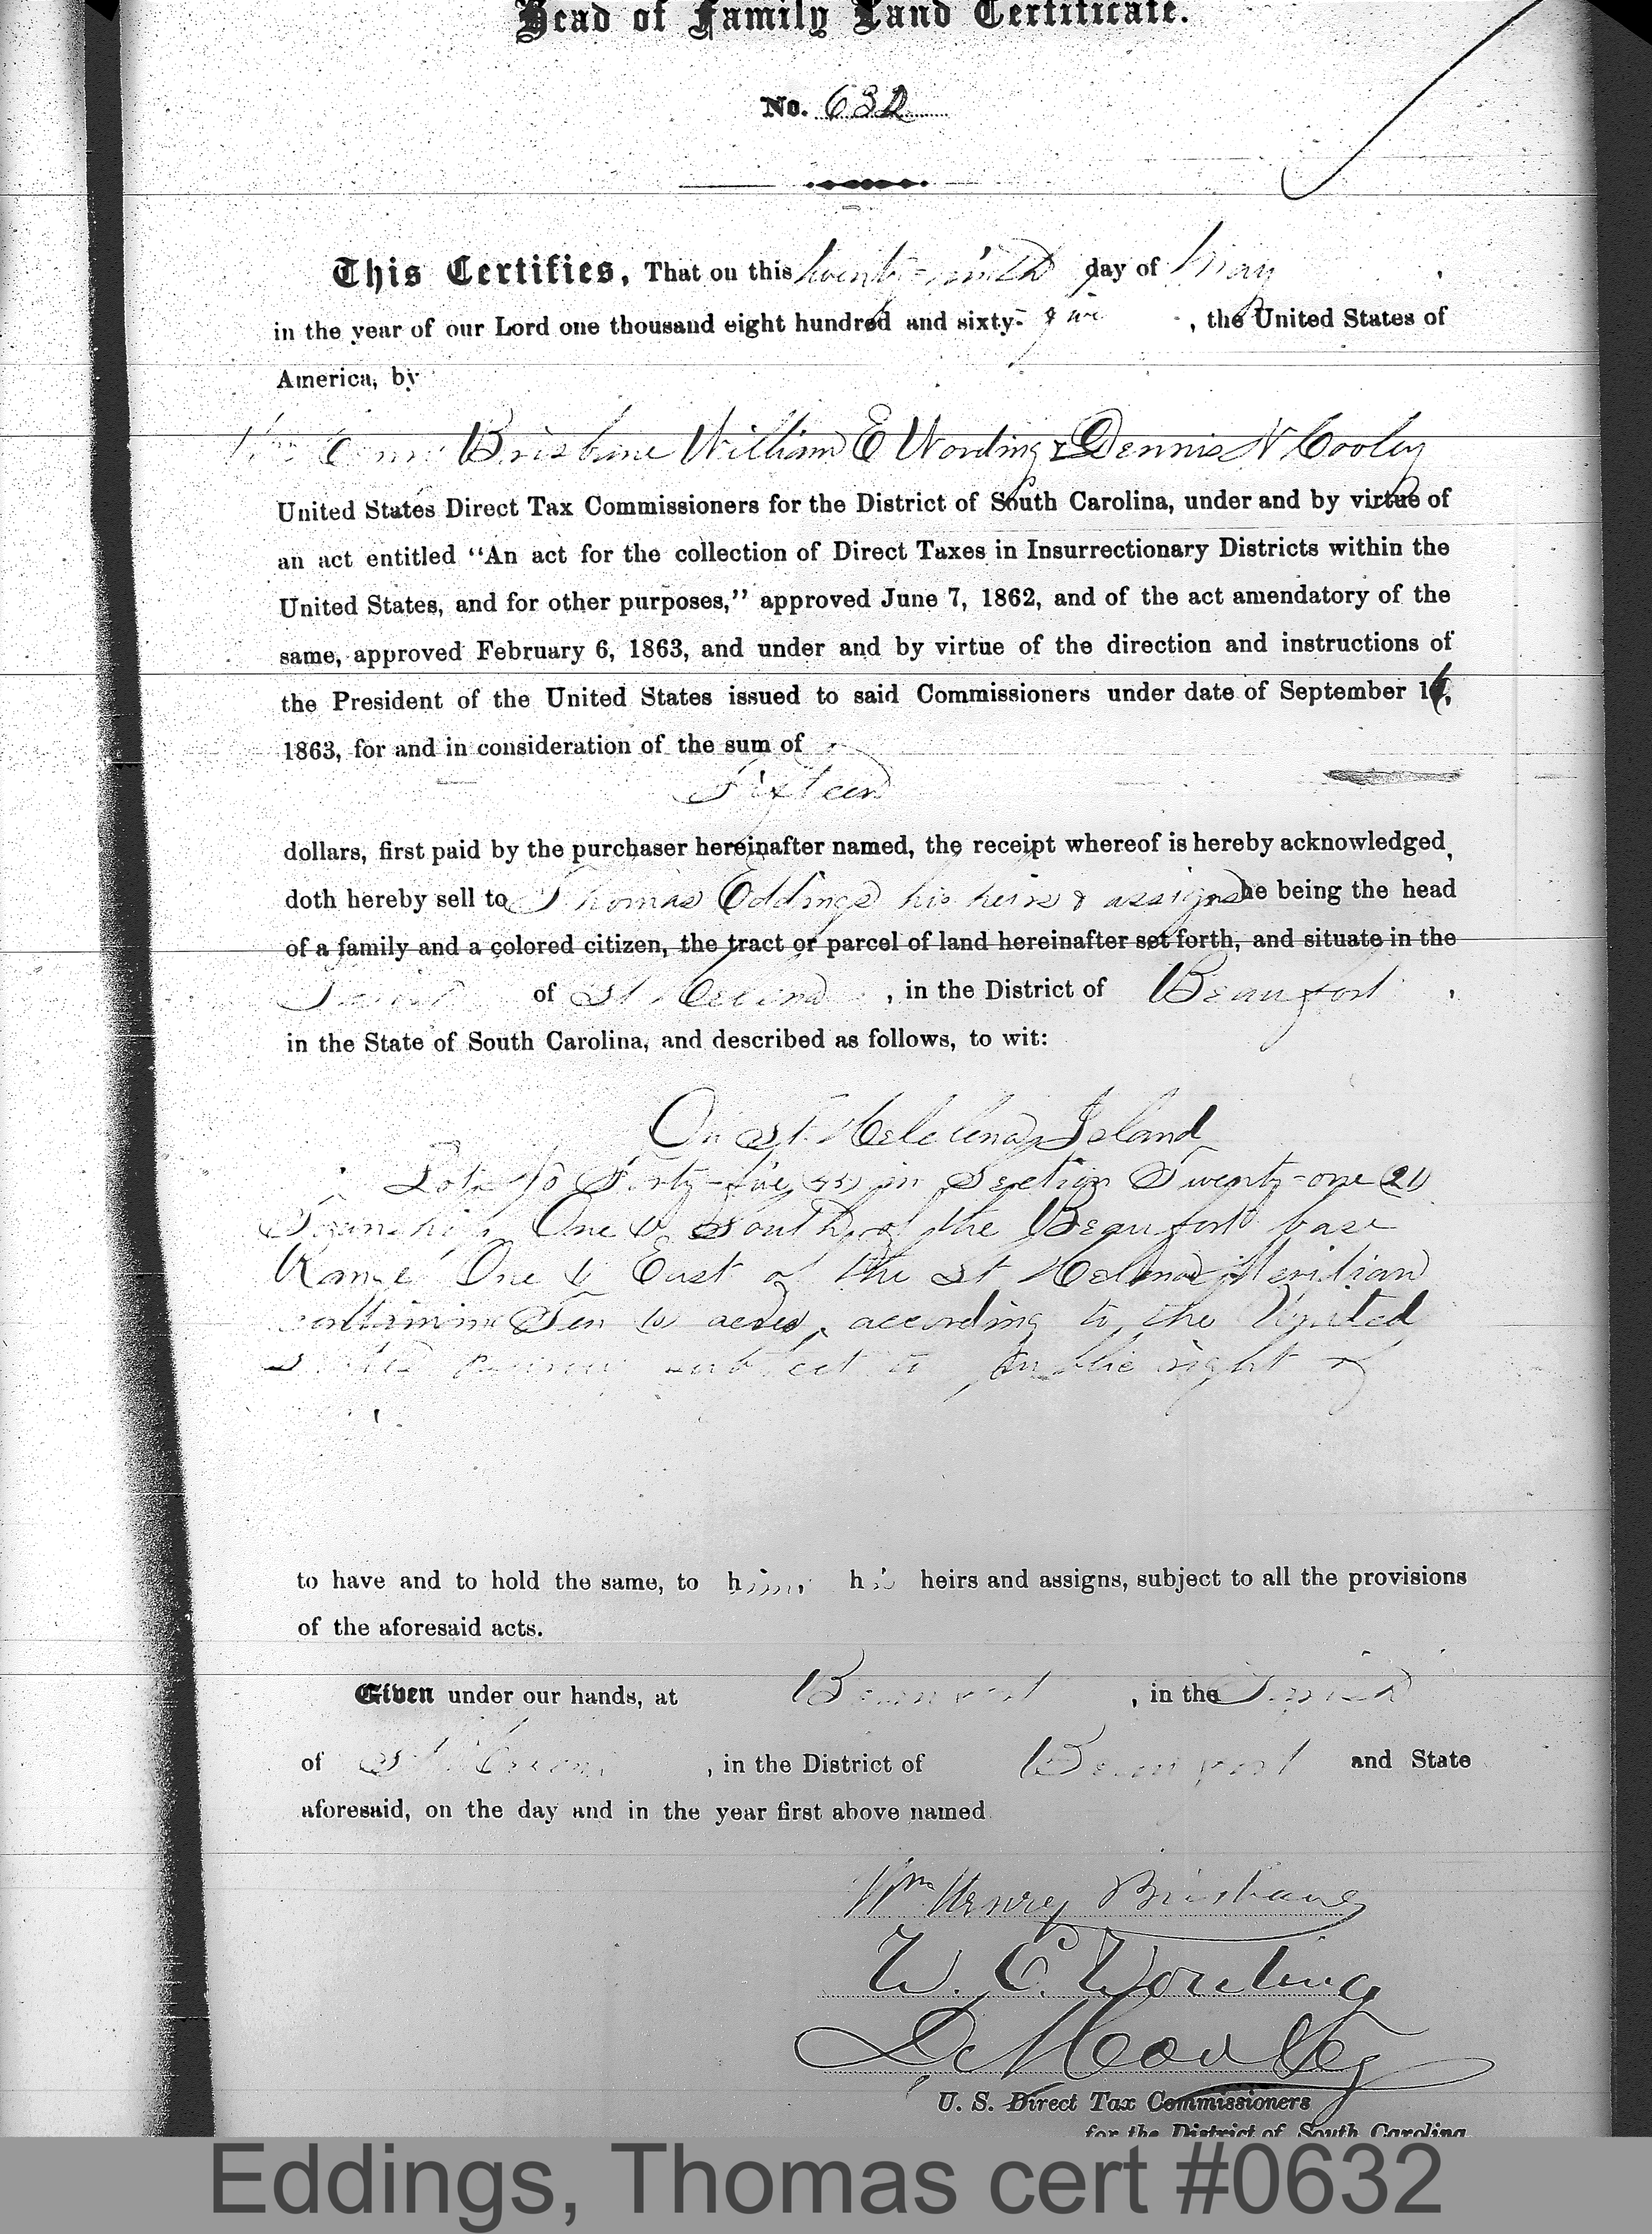 Head of Family Land Certificate.
No. 632
This Certifies, That on this twenty-ninth day of May ,
in the year of our Lord one thousand eight hundred and sixty-five , the United States of
America, by
Brisbane William E Wording & Dennis N Cooley
United States Direct Tax Commissioners for the District of South Carolina, under and by virtue of
an act entitled “An act for the collection of Direct Taxes in Insurrectionary Districts within the
United States, and for other purposes,” approved June 7, 1862, and of the act amendatory of the
same, approved February 6, 1863, and under and by virtue of the direction and instructions of
the President of the United States issued to said Commissioners under date of September 16,
1863, for and in consideration of the sum of
Sixteen
dollars, first paid by the purchaser hereinafter named, the receipt whereof is hereby acknowledged,
doth hereby sell to Thomas Eddings his heirs & assigns he being the head
of a family and a colored citizen, the tract or parcel of land hereinafter set forth, and situate in the
Parish of St Helena , in the District of Beaufort ,
in the State of South Carolina, and described as follows, to wit:
On St. Helelena Island
Lot No Forty-five (45) in Section Twenty-one (21)
Township One (1) South of the Beaufort base
Range One (1) East of the St Helena Meridian
containing Ten (10) acres, according to the United
States survey subject to public right of
to have and to hold the same, to him his heirs and assigns, subject to all the provisions
of the aforesaid acts.
Given under our hands, at Beaufort , in the Parish
of St Helena , in the District of Beaufort and State
aforesaid, on the day and in the year first above named
Wm Henry Brisbane
W. E. Wording
D. N. Cooley
U. S. Direct Tax Commissioners
for the District of South Carolina.
Eddings, Thomas cert #0632